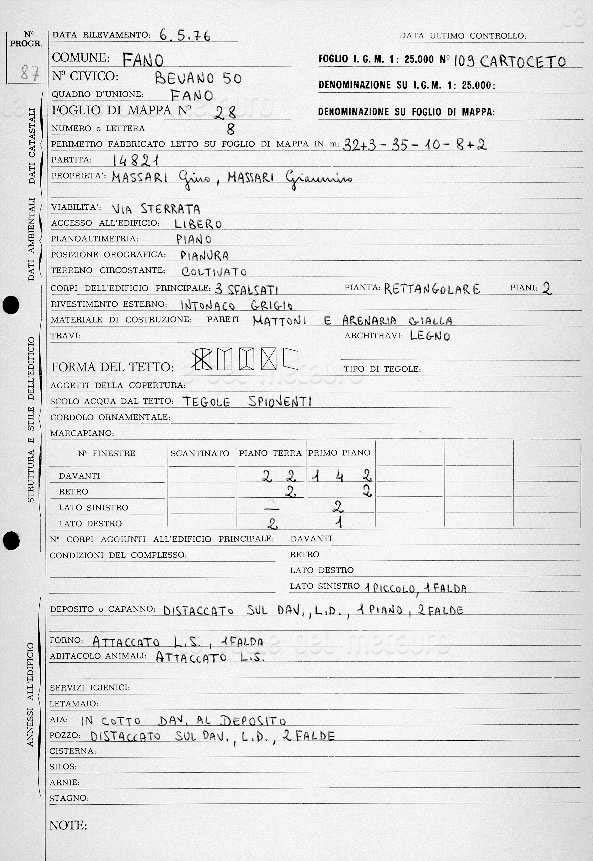 N° PROGR. 87
DATA RILEVAMENTO: 6.5.76 DATA ULTIMO CONTROLLO:
COMUNE: FANO FOGLIO I.G.M. 1: 25.000 N° 109 CARTOCETO
N° CIVICO: BEVANO 50 DENOMINAZIONE SU I.G.M. 1: 25.000:
QUADRO D'UNIONE: FANO
FOGLIO DI MAPPA N° 28 DENOMINAZIONE SU FOGLIO DI MAPPA:
NUMERO o LETTERA 8
PERIMETRO FABBRICATO LETTO SU FOGLIO DI MAPPA IN m: 32+3-35-10-8+2
PARTITA: 14821
PROPRIETA': MASSARI Gino, MASSARI Giannino
DATI CATASTALI
VIABILITA': VIA STERRATA
ACCESSO ALL'EDIFICIO: LIBERO
PLANOALTIMETRIA: PIANO
POSIZIONE OROGRAFICA: PIANURA
TERRENO CIRCOSTANTE: COLTIVATO
DATI AMBIENTALI
CORPI DELL'EDIFICIO PRINCIPALE: 3 SFALSATI PIANTA: RETTANGOLARE PIANI: 2
RIVESTIMENTO ESTERNO: INTONACO GRIGIO
MATERIALE DI COSTRUZIONE: PARETI MATTONI E ARENARIA GIALLA
TRAVI: ARCHITRAVI: LEGNO
FORMA DEL TETTO: TIPO DI TEGOLE:
AGGETTI DELLA COPERTURA:
SCOLO ACQUA DAL TETTO: TEGOLE SPIOVENTI
CORDOLO ORNAMENTALE:
MARCAPIANO:
N° FINESTRE SCANTINATO PIANO TERRA PRIMO PIANO
DAVANTI 2 2 1 4 2
RETRO 2 2
LATO SINISTRO — 2
LATO DESTRO 2 1
STRUTTURA E STILE DELL'EDIFICIO
N° CORPI AGGIUNTI ALL'EDIFICIO PRINCIPALE: DAVANTI
CONDIZIONI DEL COMPLESSO: RETRO
LATO DESTRO
LATO SINISTRO 1 PICCOLO, 1 FALDA
DEPOSITO o CAPANNO: DISTACCATO SUL DAV., L.D., 1 PIANO, 2 FALDE
FORNO: ATTACCATO L.S., 1 FALDA
ABITACOLO ANIMALI: ATTACCATO L.S.
SERVIZI IGIENICI:
LETAMAIO:
AIA: IN COTTO DAV. AL DEPOSITO
POZZO: DISTACCATO SUL DAV., L.D., 2 FALDE
CISTERNA:
SILOS:
ARNIE:
STAGNO:
ANNESSI ALL'EDIFICIO
NOTE: